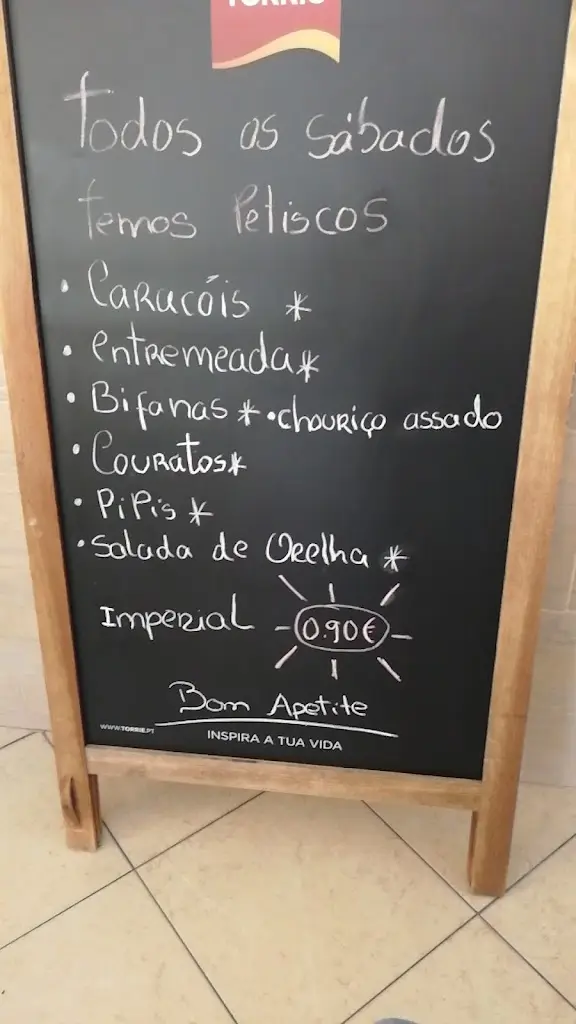 TORRIE
Todos os sábados
temos Petiscos
• Caracóis *
• entremeada *
• Bifanas * • chouriço assado
• Couratos *
• PiPis *
• Salada de Orelha *
Imperial 0.90€
Bom Apetite
WWW.TORRIE.PT
INSPIRA A TUA VIDA